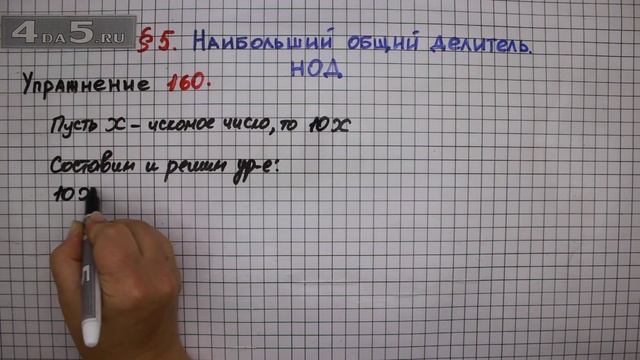 4DA5.RU
§5. Наибольший общий делитель.
НОД
Упражнение 160.
Пусть x – искомое число, то 10x
Составим и решим ур-е:
10x